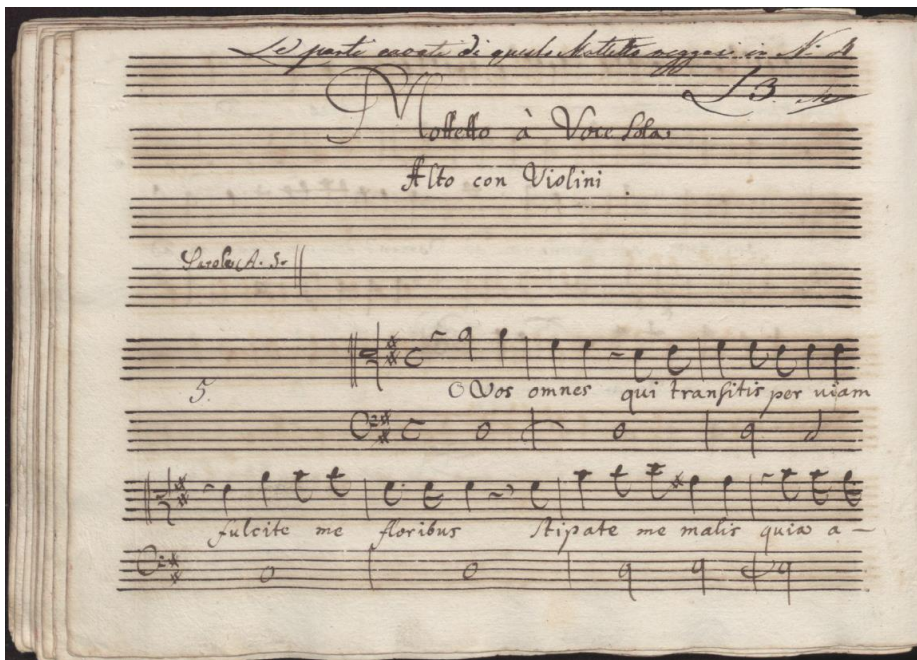 Le parti cavate di questo Mottetto veggasi in N. 
L 3.
Mottetto à Voce Sola
Alto con Violini
Parole A. 5.
O Vos omnes qui transitis per viam
5.
fulcite me floribus Stipate me malis quia a-